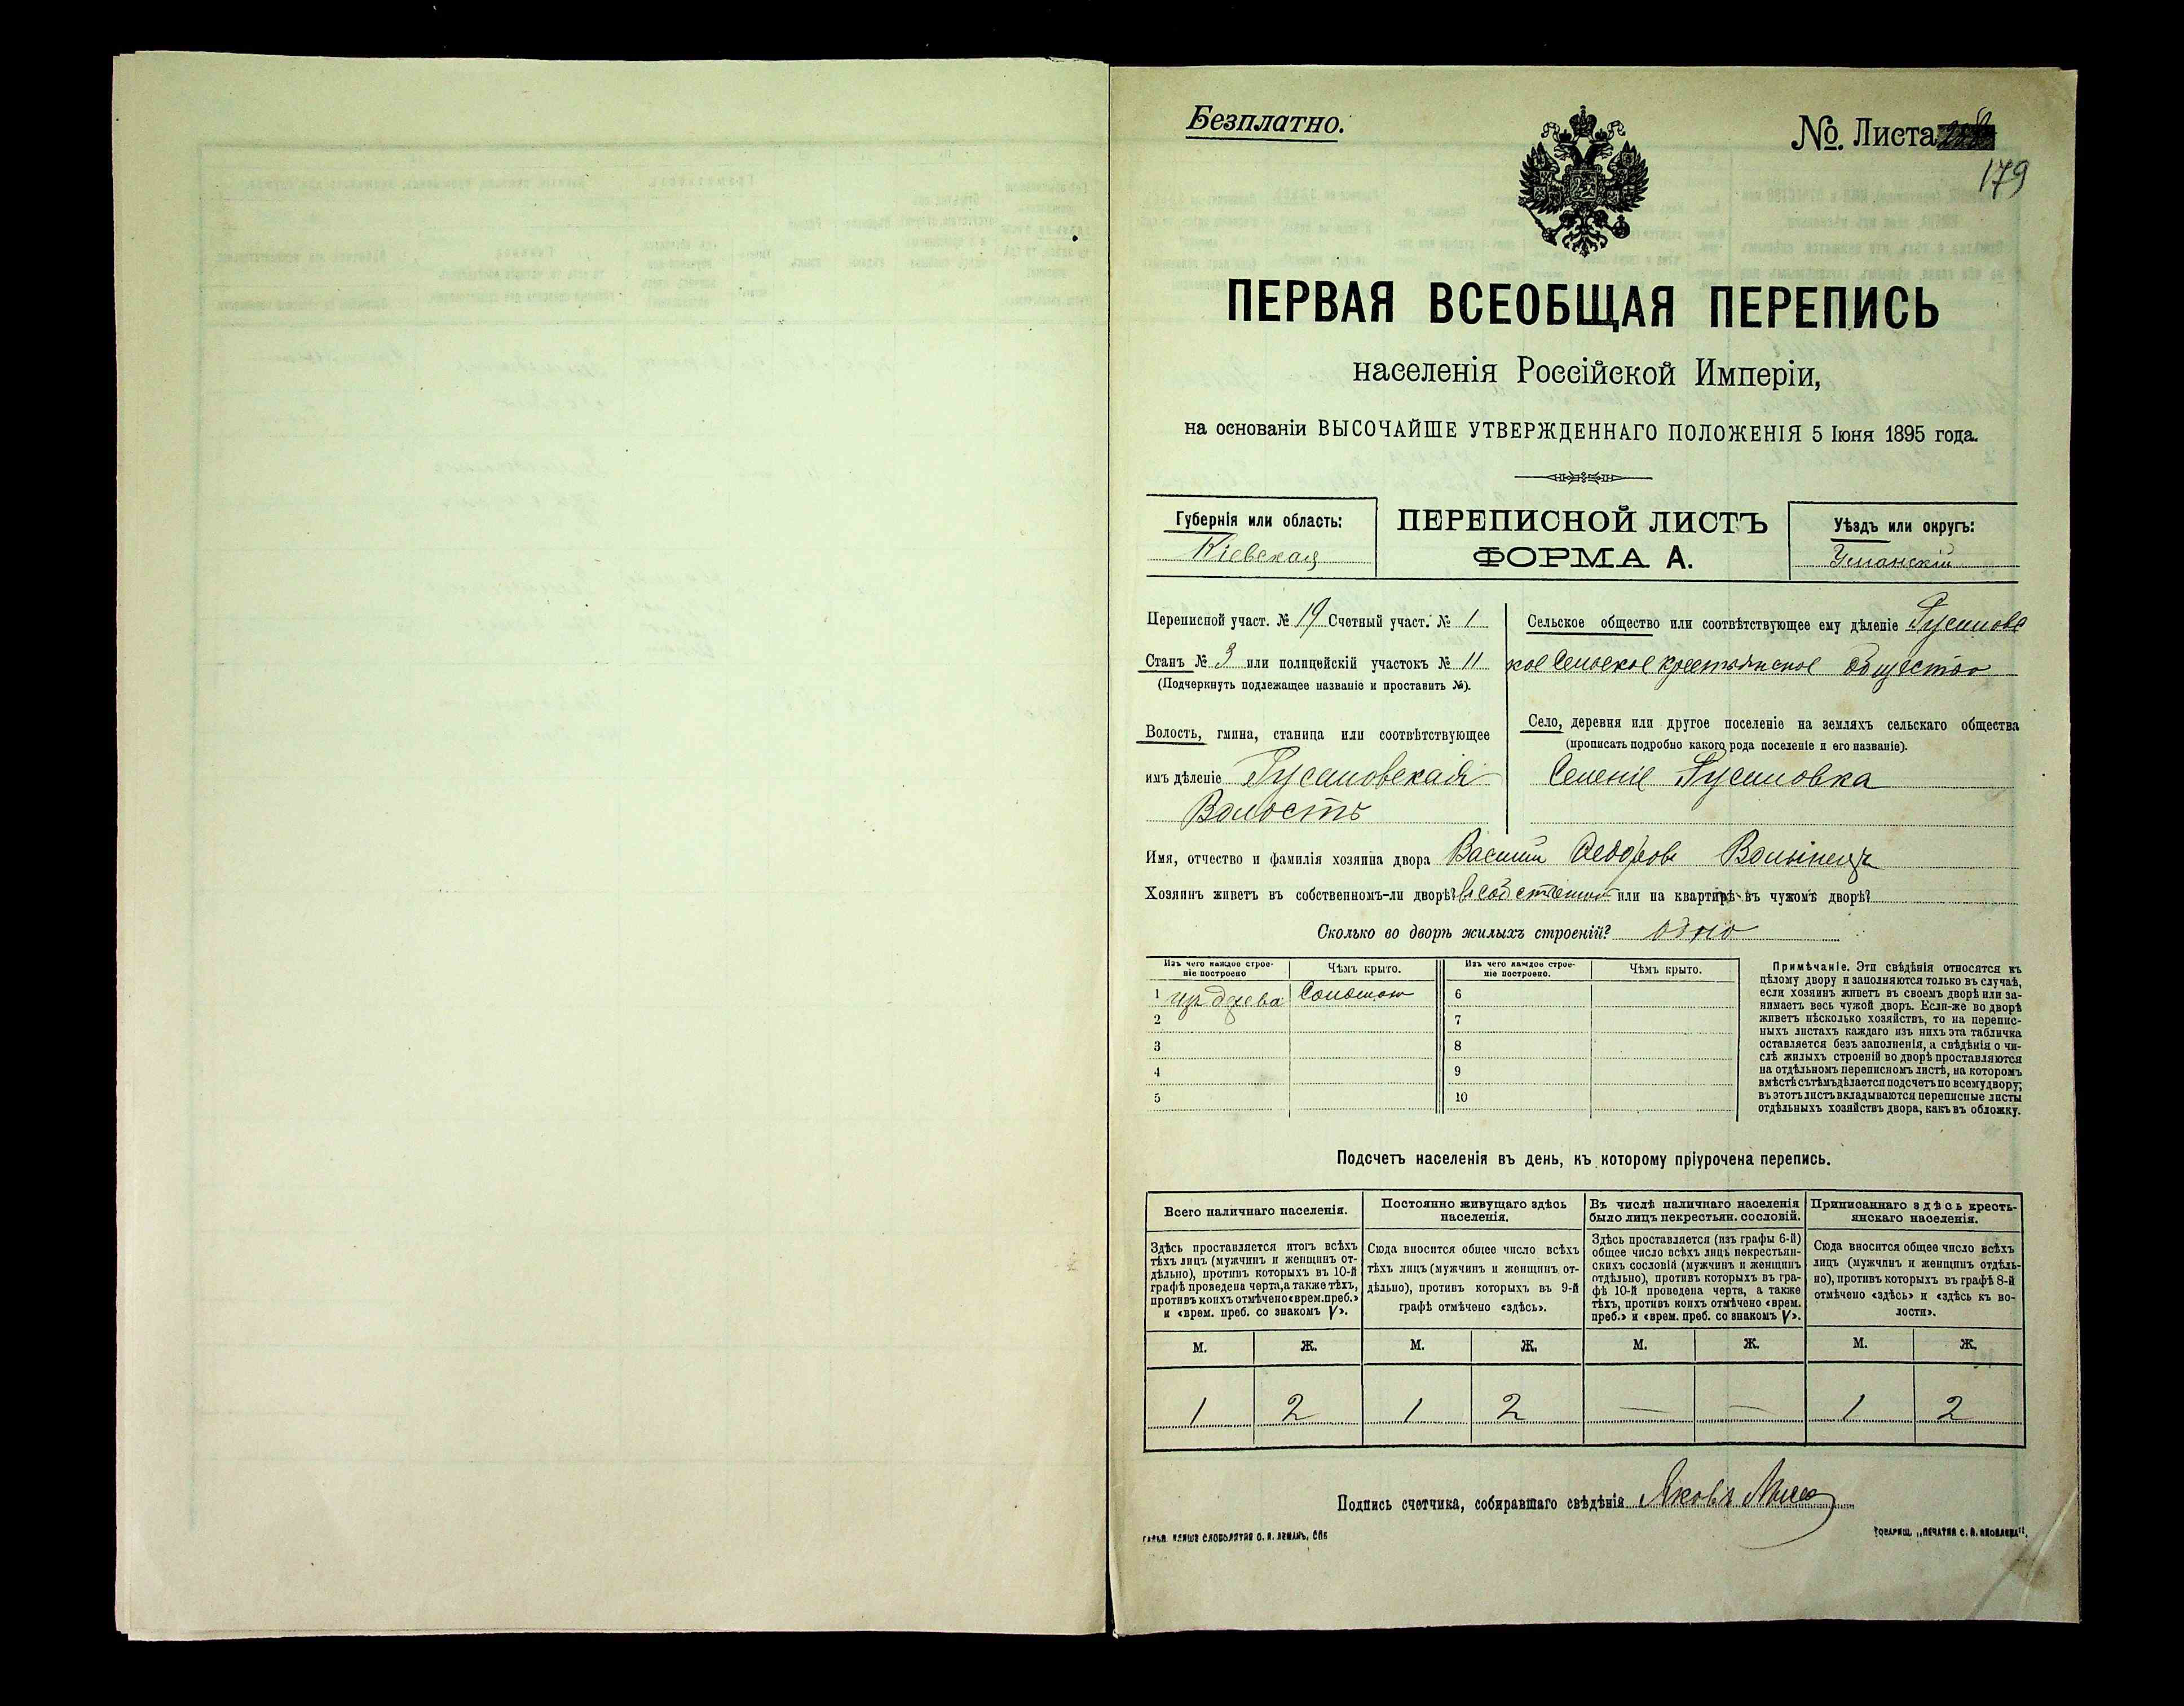 Безплатно.
№. Листа
179
ПЕРВАЯ ВСЕОБЩАЯ ПЕРЕПИСЬ
населенія Россійской Имперіи,
на основаніи ВЫСОЧАЙШЕ УТВЕРЖДЕННАГО ПОЛОЖЕНІЯ 5 Іюня 1895 года.
Губернія или область:
Кіевская
ПЕРЕПИСНОЙ ЛИСТЪ
ФОРМА А.
Уѣздъ или округъ:
Уманскій
Переписной участ. № 19 Счетный участ. № 1
Станъ № 3 или полицейскій участокъ № 11
(Подчеркнуть подлежащее названіе и проставить №).
Волость, гмина, станица или соотвѣтствующее
имъ дѣленіе Русаловская
Волость
Сельское общество или соотвѣтствующее ему дѣленіе Русаловс
кое Сельское крестьянское общество
Село, деревня или другое поселеніе на земляхъ сельскаго общества
(прописать подробно какого рода поселеніе и его названіе).
Селеніе Русаловка
Имя, отчество и фамилія хозяина двора Василій Федоровъ Волынецъ
Хозяинъ живетъ въ собственномъ-ли дворѣ? въ собственномъ или на квартирѣ въ чужомъ дворѣ?
Сколько во дворѣ жилыхъ строеній? одно
Изъ чего каждое строеніе построено
Чѣмъ крыто.
Изъ чего каждое строеніе построено.
Чѣмъ крыто.
1 изъ дерева Соломою 6
2 7
3 8
4 9
5 10
Примѣчаніе. Эти свѣдѣнія относятся къ
цѣлому двору и заполняются только въ случаѣ,
если хозяинъ живетъ въ своемъ дворѣ или за-
нимаетъ весь чужой дворъ. Если-же во дворѣ
живетъ нѣсколько хозяйствъ, то на перепис-
ныхъ листахъ каждаго изъ нихъ эта табличка
оставляется безъ заполненія, а свѣдѣнія о чи-
слѣ жилыхъ строеній во дворѣ проставляются
на отдѣльномъ переписномъ листѣ, на которомъ
вмѣстѣ съ тѣмъ дѣлается подсчетъ по всему двору;
въ этотъ листъ вкладываются переписные листы
отдѣльныхъ хозяйствъ двора, какъ въ обложку.
Подсчетъ населенія въ день, къ которому пріурочена перепись.
Всего наличнаго населенія.
Постоянно живущаго здѣсь
населенія.
Въ числѣ наличнаго населенія
было лицъ некрестьян. сословій.
Приписаннаго здѣсь кресть-
янскаго населенія.
Здѣсь проставляется итогъ всѣхъ
тѣхъ лицъ (мужчинъ и женщинъ от-
дѣльно), противъ которыхъ въ 10-й
графѣ проведена черта, а также тѣхъ,
противъ коихъ отмѣчено «врем. преб.»
и «врем. преб. со знакомъ V».
Сюда вносится общее число всѣхъ
тѣхъ лицъ (мужчинъ и женщинъ от-
дѣльно), противъ которыхъ въ 9-й
графѣ отмѣчено «здѣсь».
Здѣсь проставляется (изъ графы 6-й)
общее число всѣхъ лицъ некрестьян-
скихъ сословій (мужчинъ и женщинъ
отдѣльно), противъ которыхъ въ гра-
фѣ 10-й проведена черта, а также
тѣхъ, противъ коихъ отмѣчено «врем.
преб.» и «врем. преб. со знакомъ V».
Сюда вносится общее число всѣхъ
лицъ (мужчинъ и женщинъ отдѣль-
но), противъ которыхъ въ графѣ 8-й
отмѣчено «здѣсь» и «здѣсь къ во-
лости».
М. Ж. М. Ж. М. Ж. М. Ж.
1 2 1 2 — — 1 2
Подпись счетчика, собиравшаго свѣдѣнія Яковъ
ТОВАРИЩ. „ПЕЧАТНЯ С. П. ЯКОВЛЕВА".